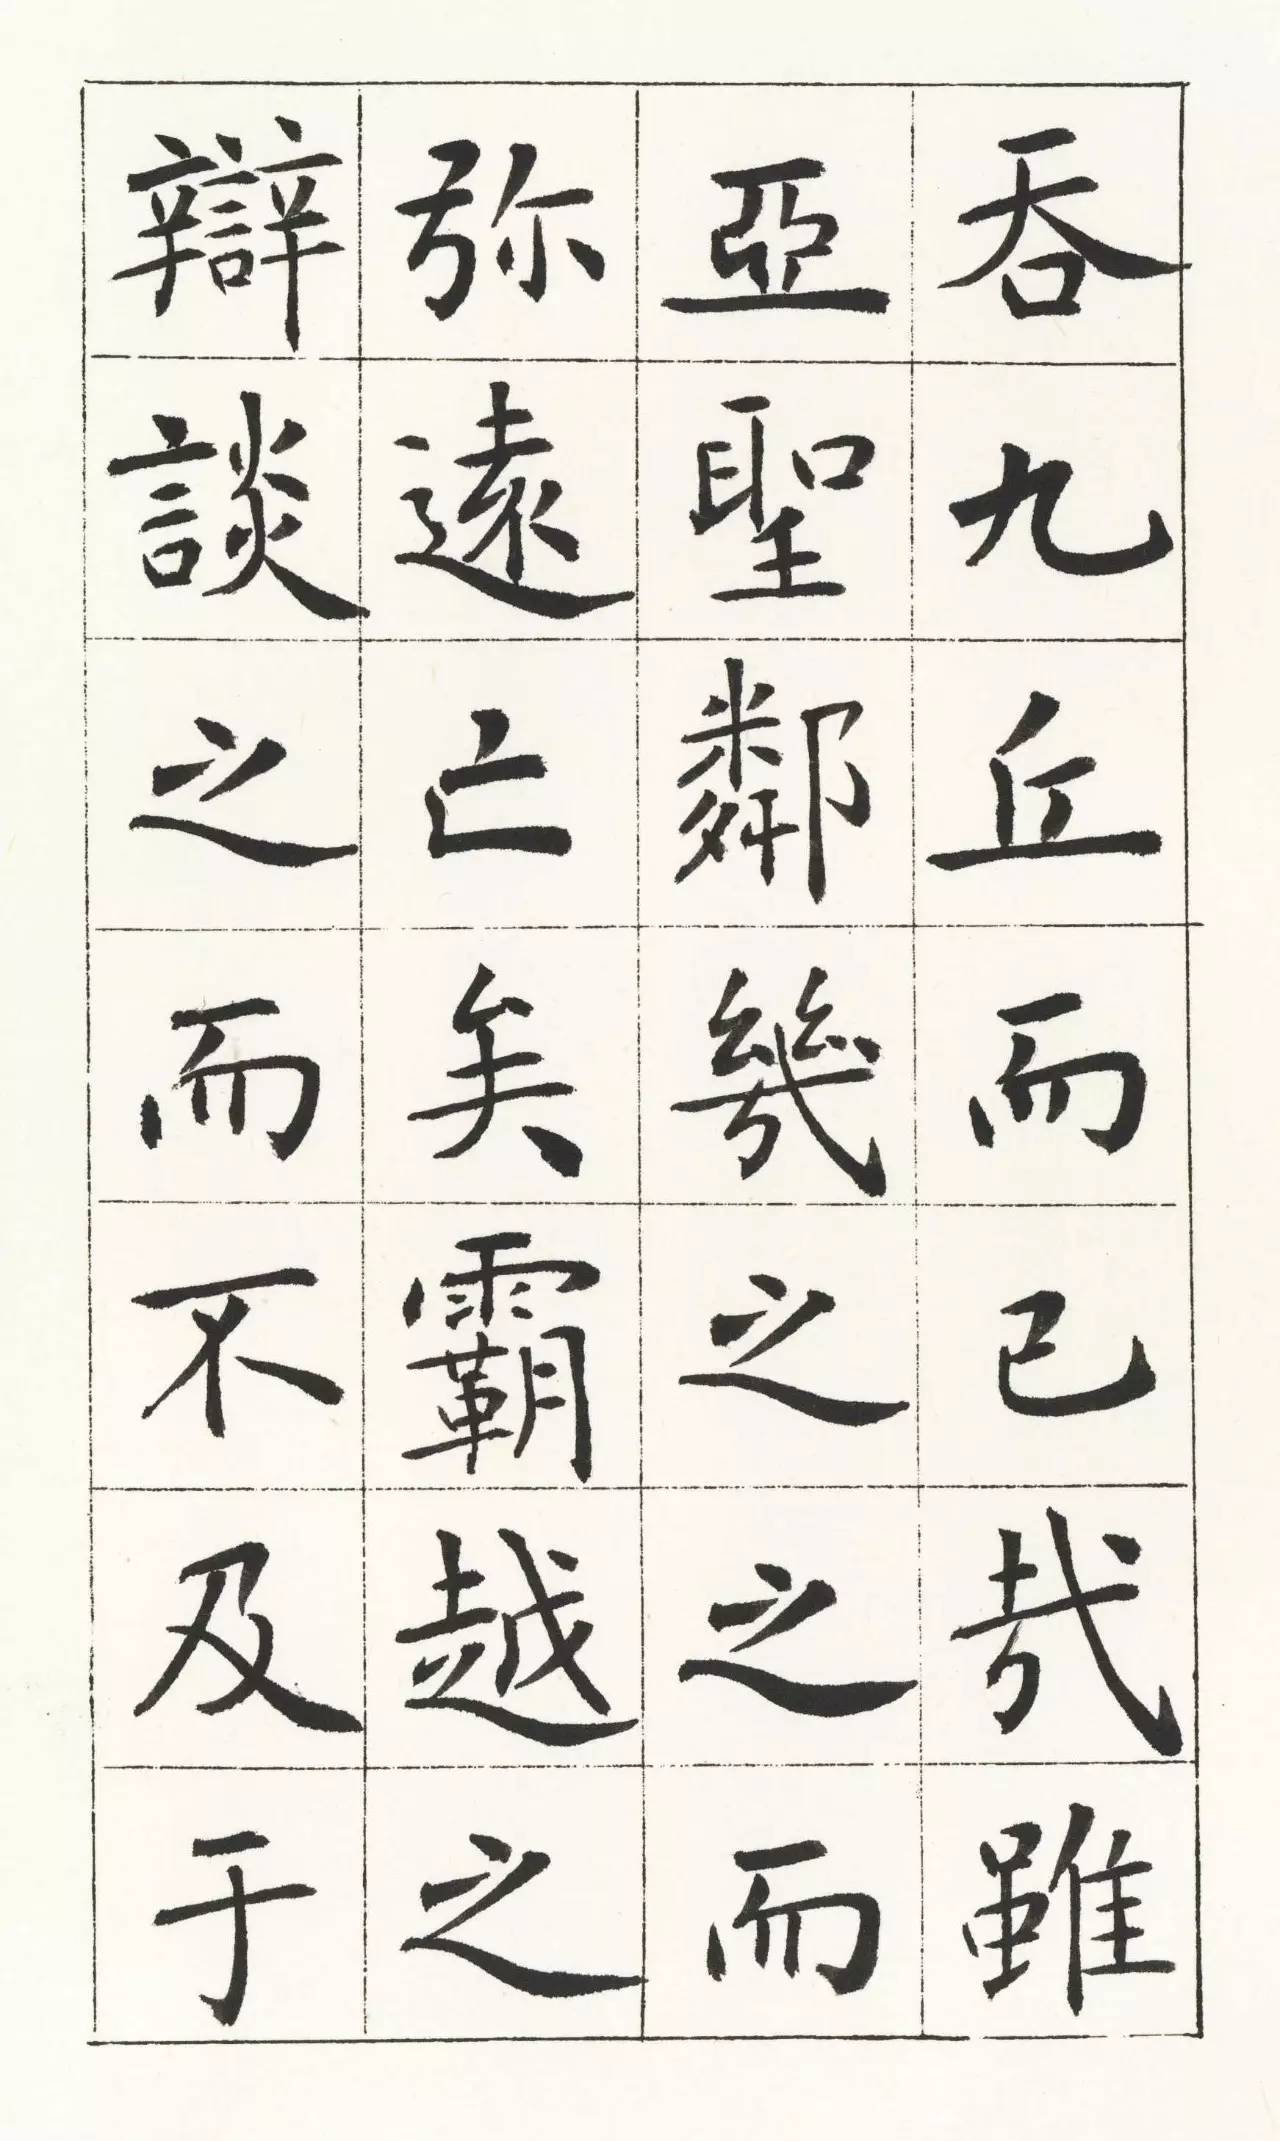 吞九丘而已哉雖
亞聖鄰幾之之而
弥遠亡矣霸越之
辯談之而不及于